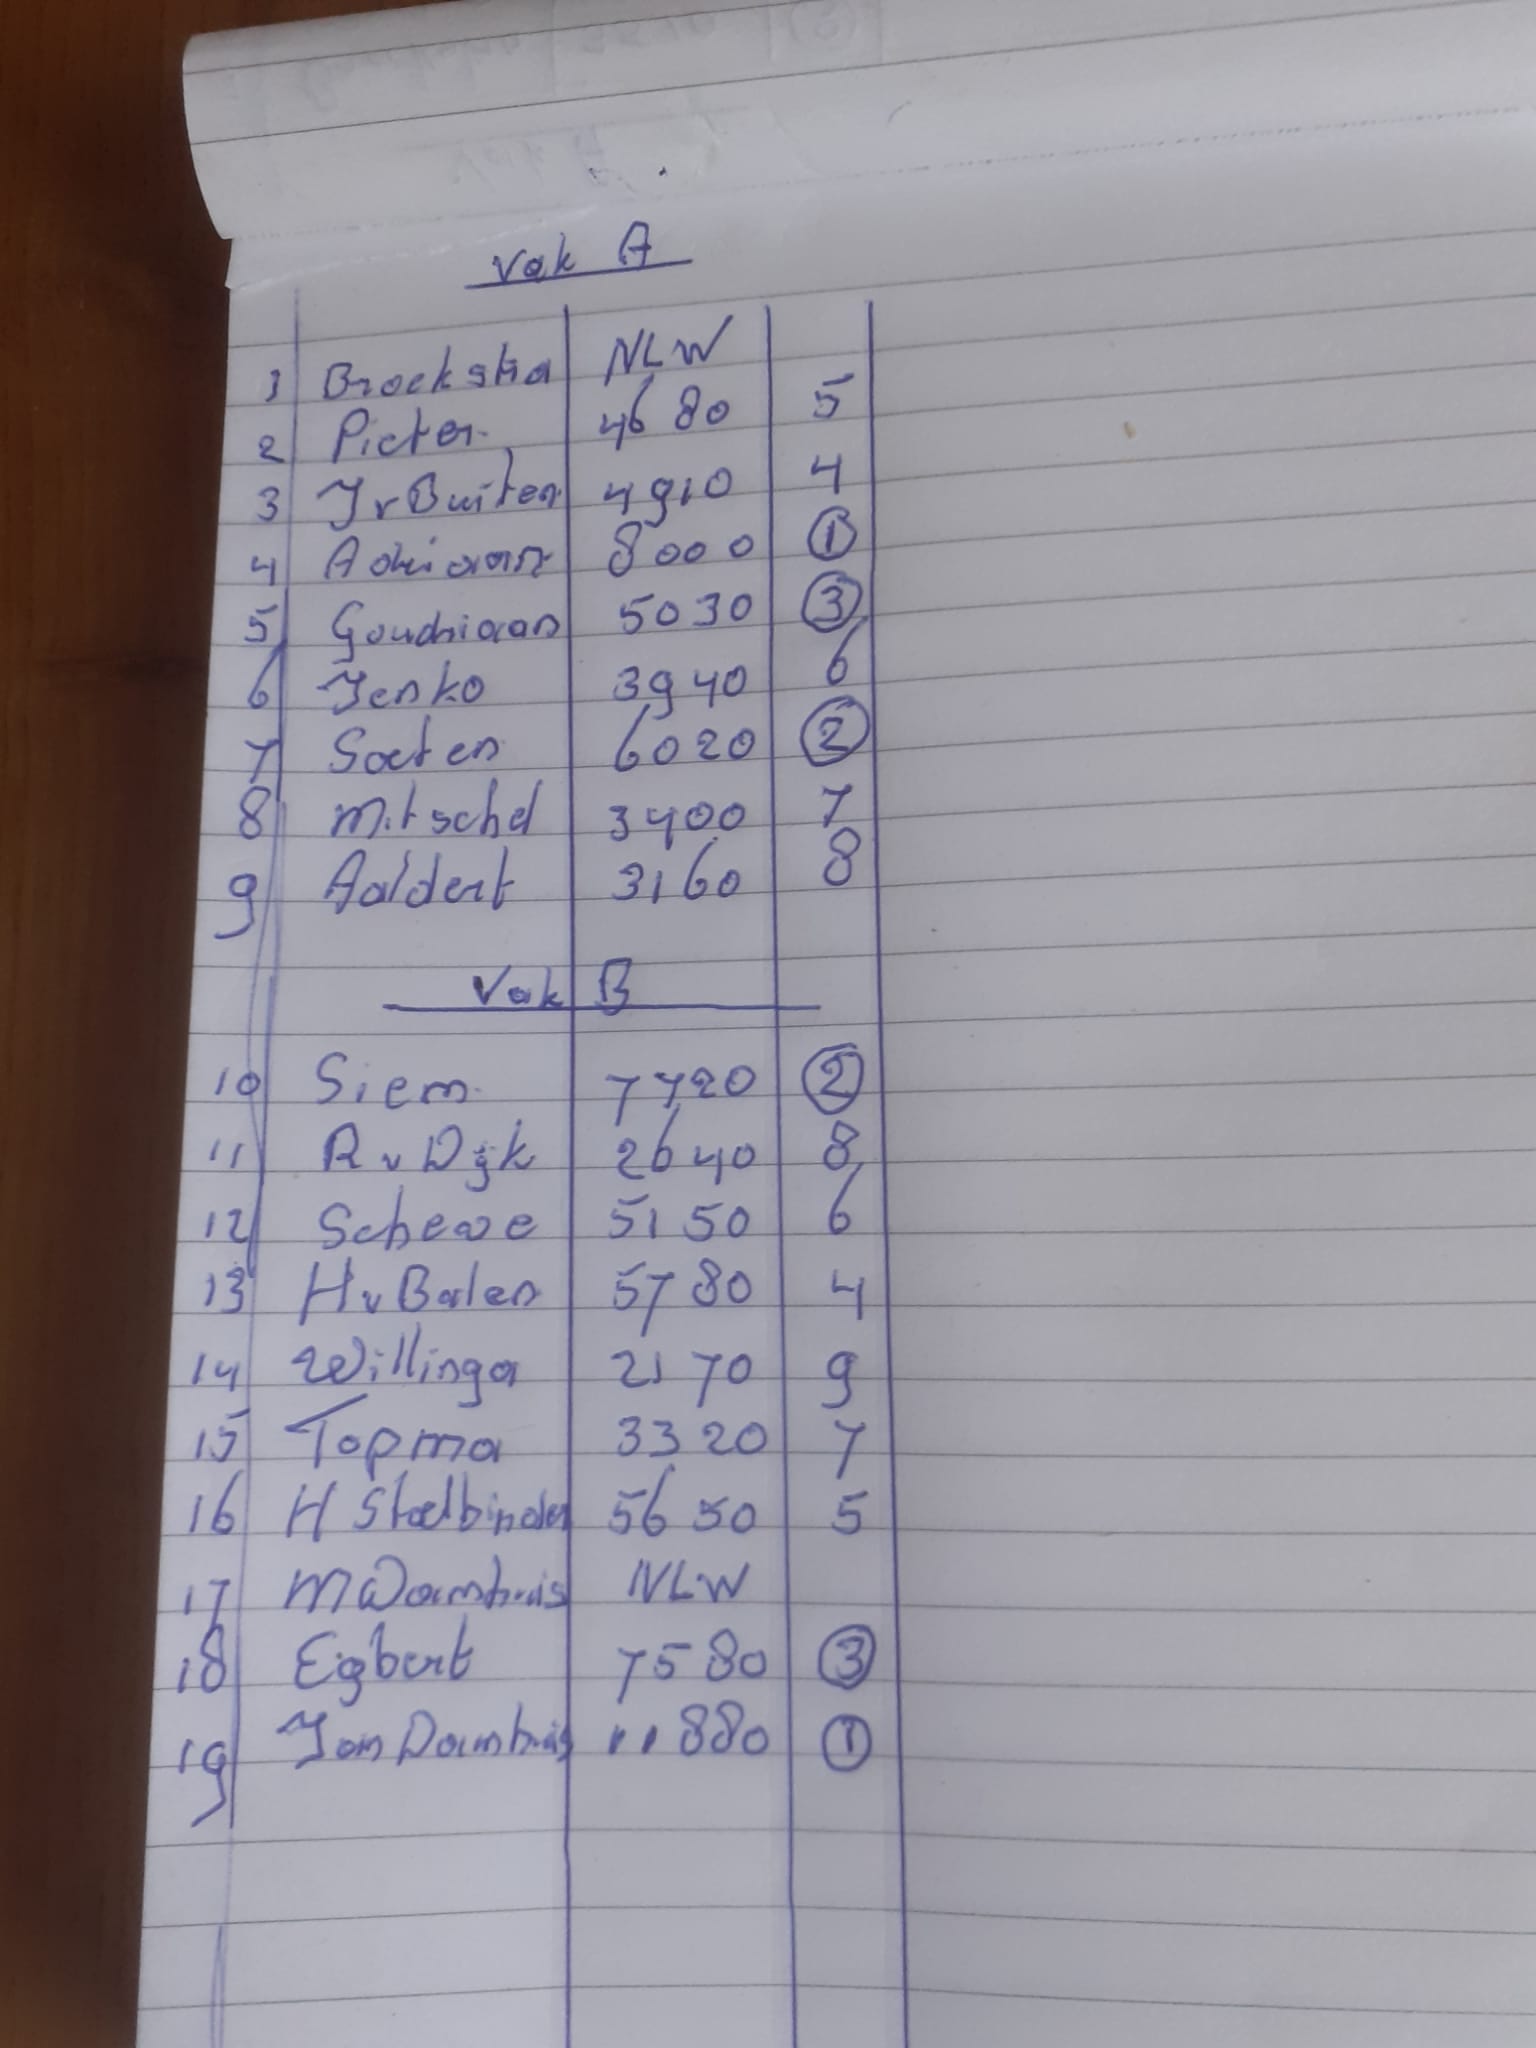 Vak A
1 Broekstra NLW
2 Pieter. 4680 5
3 J v Buiten 4910 4
4 Adriaan 8000 1
5 Goudriaan 5030 3
6 Jenko 3940 6
7 Soeten 6020 2
8 Mitschel 3400 7
9 Aaldert 3160 8
Vak B
10 Siem. 7720 2
11 R v Dijk 2640 8
12 5150 6
13 H v Balen 5780 4
14 Willinga 2170 9
15 Topma 3320 7
16 H Stoelbinder 5650 5
17 M Damhuis NLW
18 Egbert 7580 3
19 Jan Damhuis 11880 1